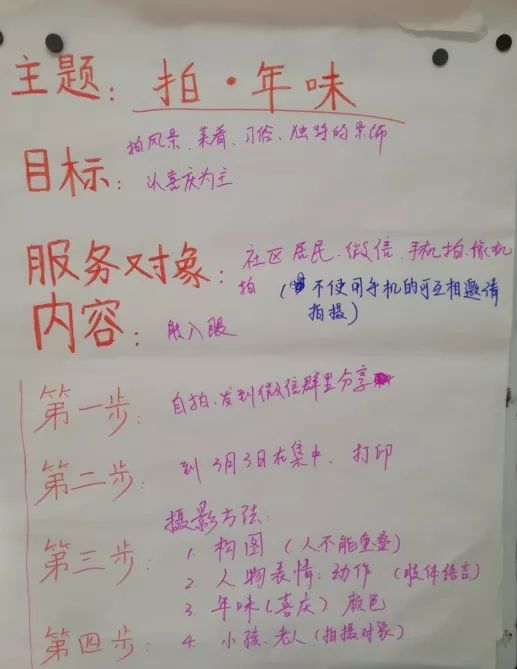 主题：拍·年味
拍风景、菜肴、习俗、独特的景饰
目标：
以喜庆为主
服务对象：社区居民、微信、手机拍、像机
拍（不使用手机的可互相邀请
拍摄）
内容：入眼
第一步：自拍、发到微信群里分享
第二步：到3月3日在集中、打印
摄影方法：
第三步：1. 构图（人不能重叠）
2. 人物表情：动作（肢体语言）
3. 年味（喜庆）颜色
第四步：4. 小孩、老人（拍摄对象）